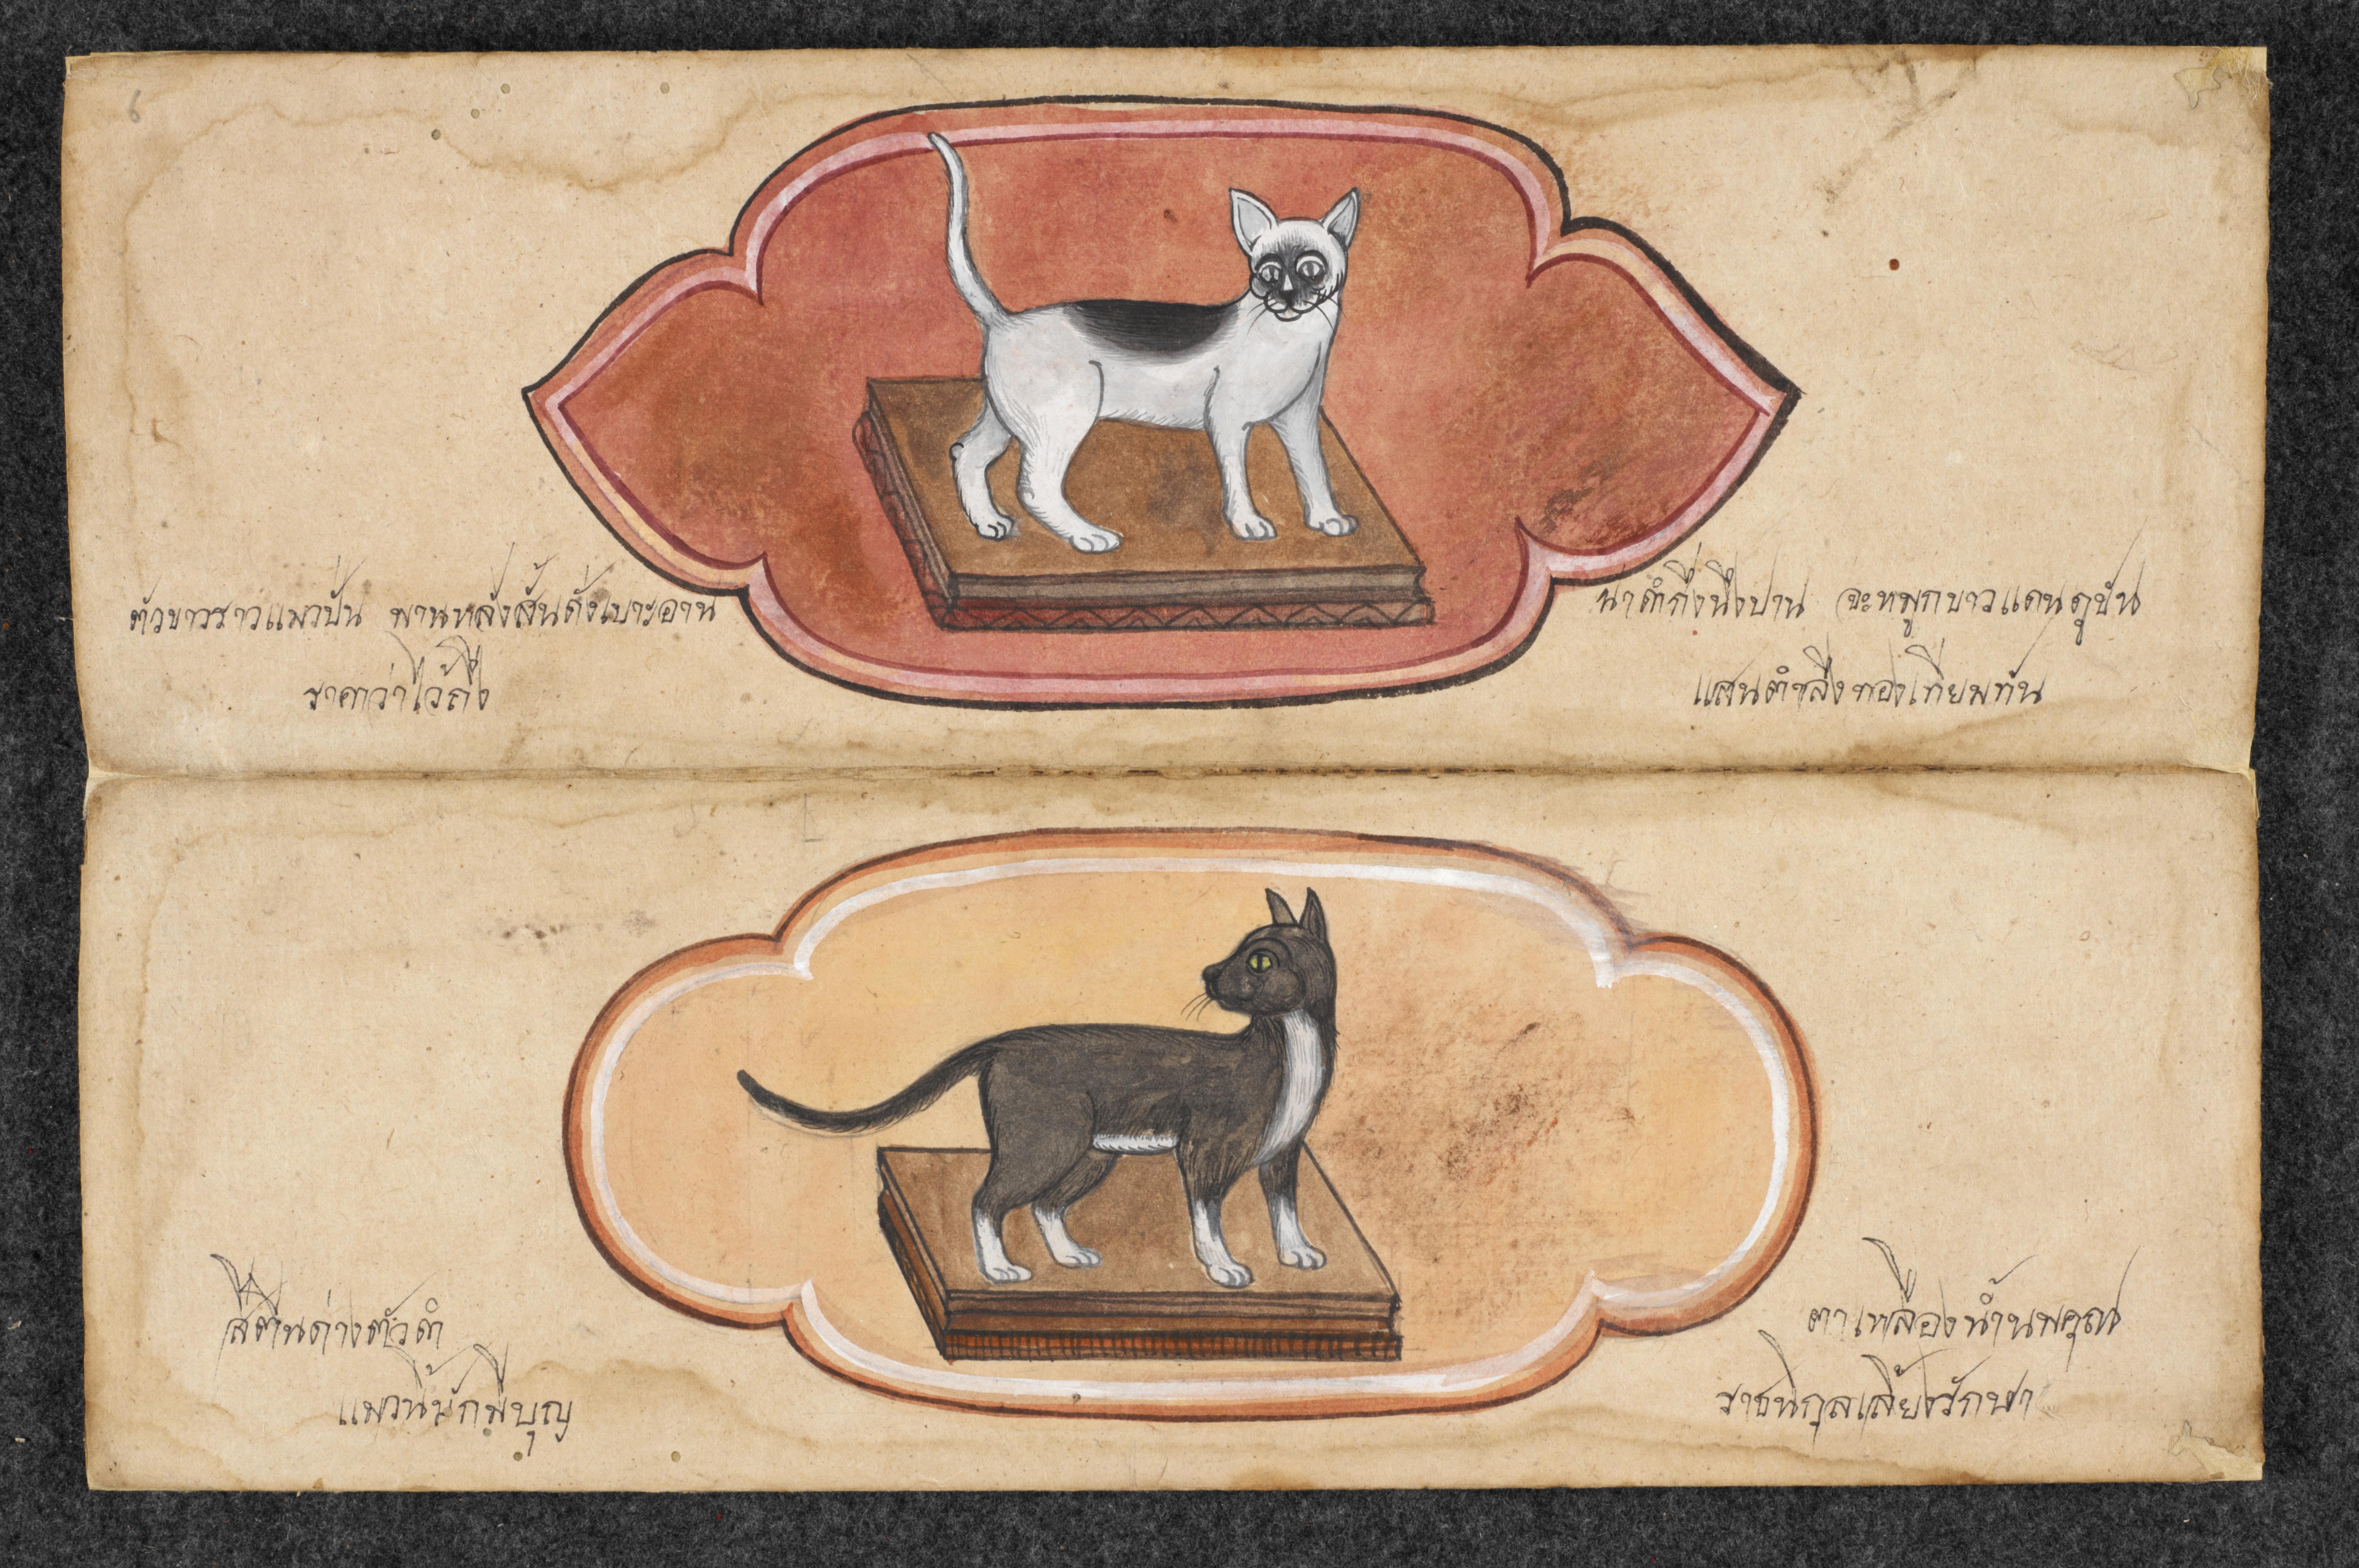 6
ตัวขาวราวแมวปั้น พานหลังสั้นดั่งเบาะอาน
ราคาว่าไว้ถึง
น่าดำกึ่งนึงปาน จะหมูกขาวแดน
แสนตำลึงทองเทียมทัน
สี่ตีนด่างตัวดำ
แมวนี้มักมีบุญ
ตาเหลืองน้ำนพคุณ
ราชนิกุลเลี้ยงรักษา